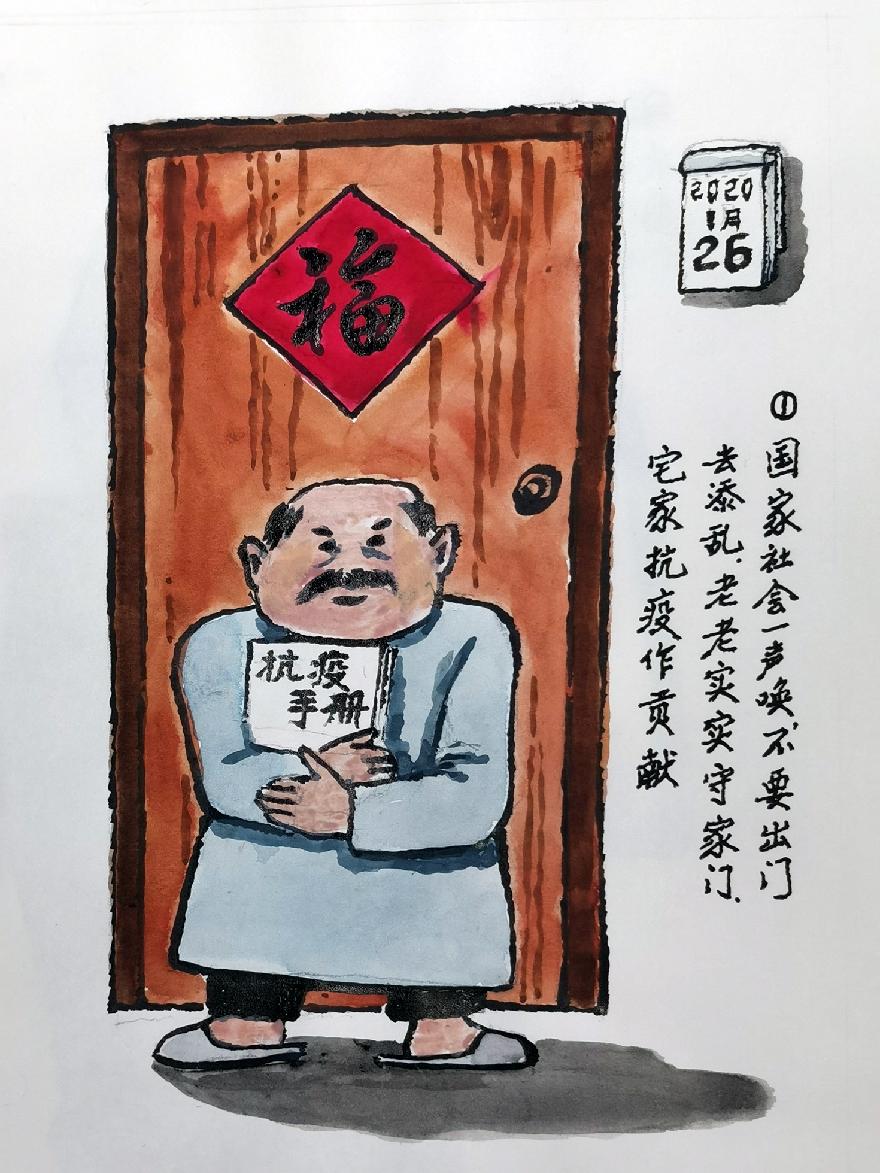 福
2020
1月
26
抗疫
手册
①国家社会一声唤不要出门
去添乱.老老实实守家门.
宅家抗疫作贡献